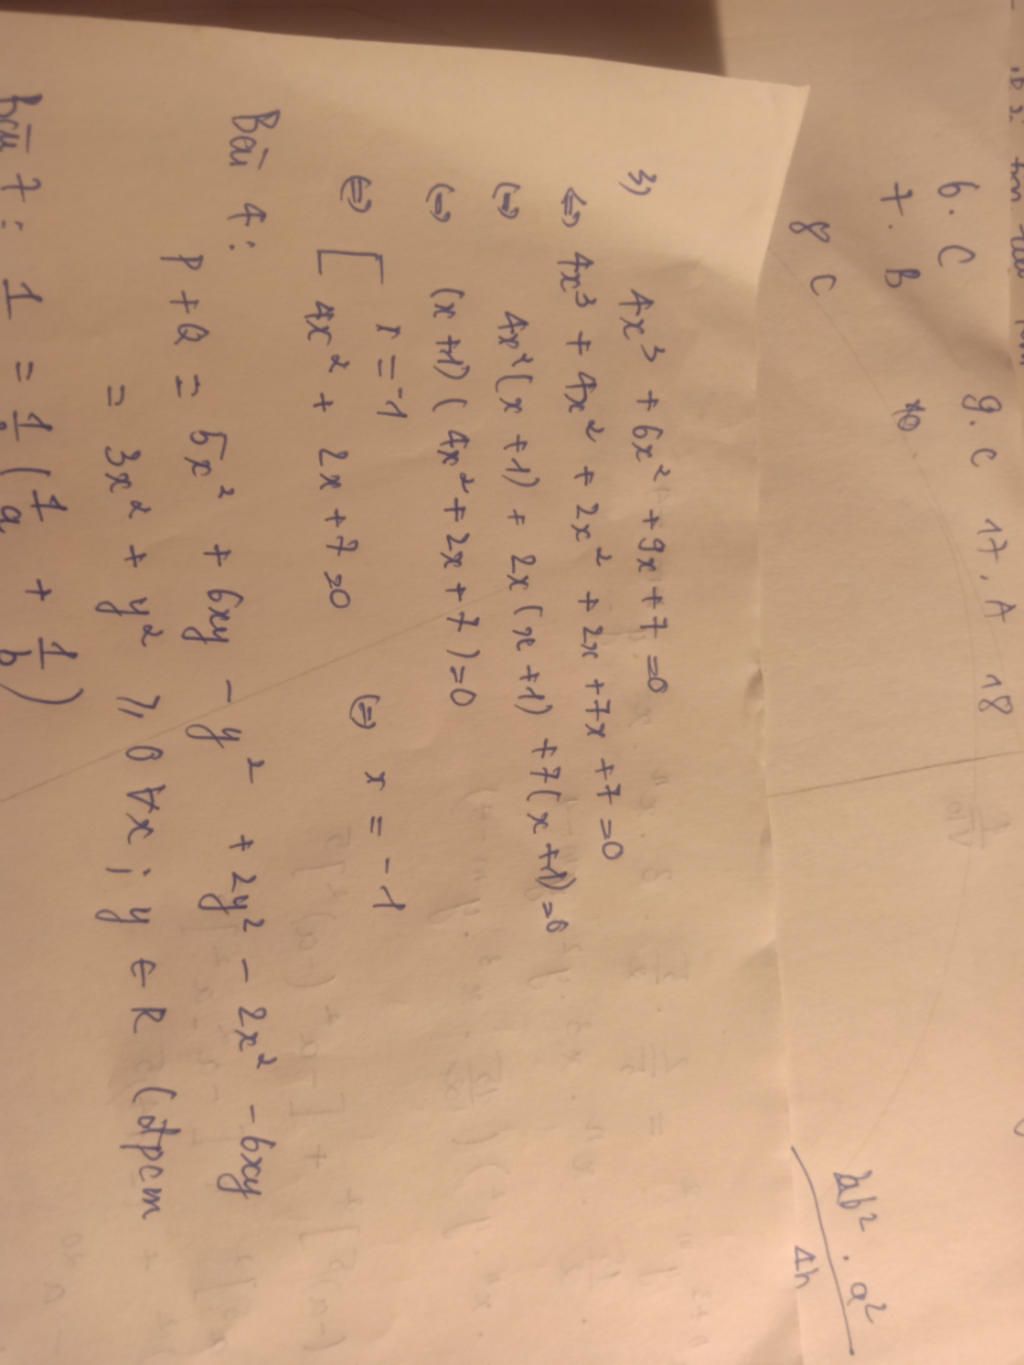 6. C 9. C 17. A 18
7. B 10
8 C
2b² . a²
4h
3) 4x³ + 6x² + 9x + 7 = 0
⇔ 4x³ + 4x² + 2x² + 2x + 7x + 7 = 0
(=) 4x²(x + 1) + 2x(x + 1) + 7(x + 1) = 0
(=) (x + 1)(4x² + 2x + 7) = 0
(=) [ x = -1
4x² + 2x + 7 = 0 (=) x = -1
Bài 4:
P + Q = 5x² + 6xy - y² + 2y² - 2x² - 6xy
= 3x² + y² ≥ 0 ∀x ; y ∈ R (đpcm
Bài 7: 1 = 1/ ( 1/a + 1/b )